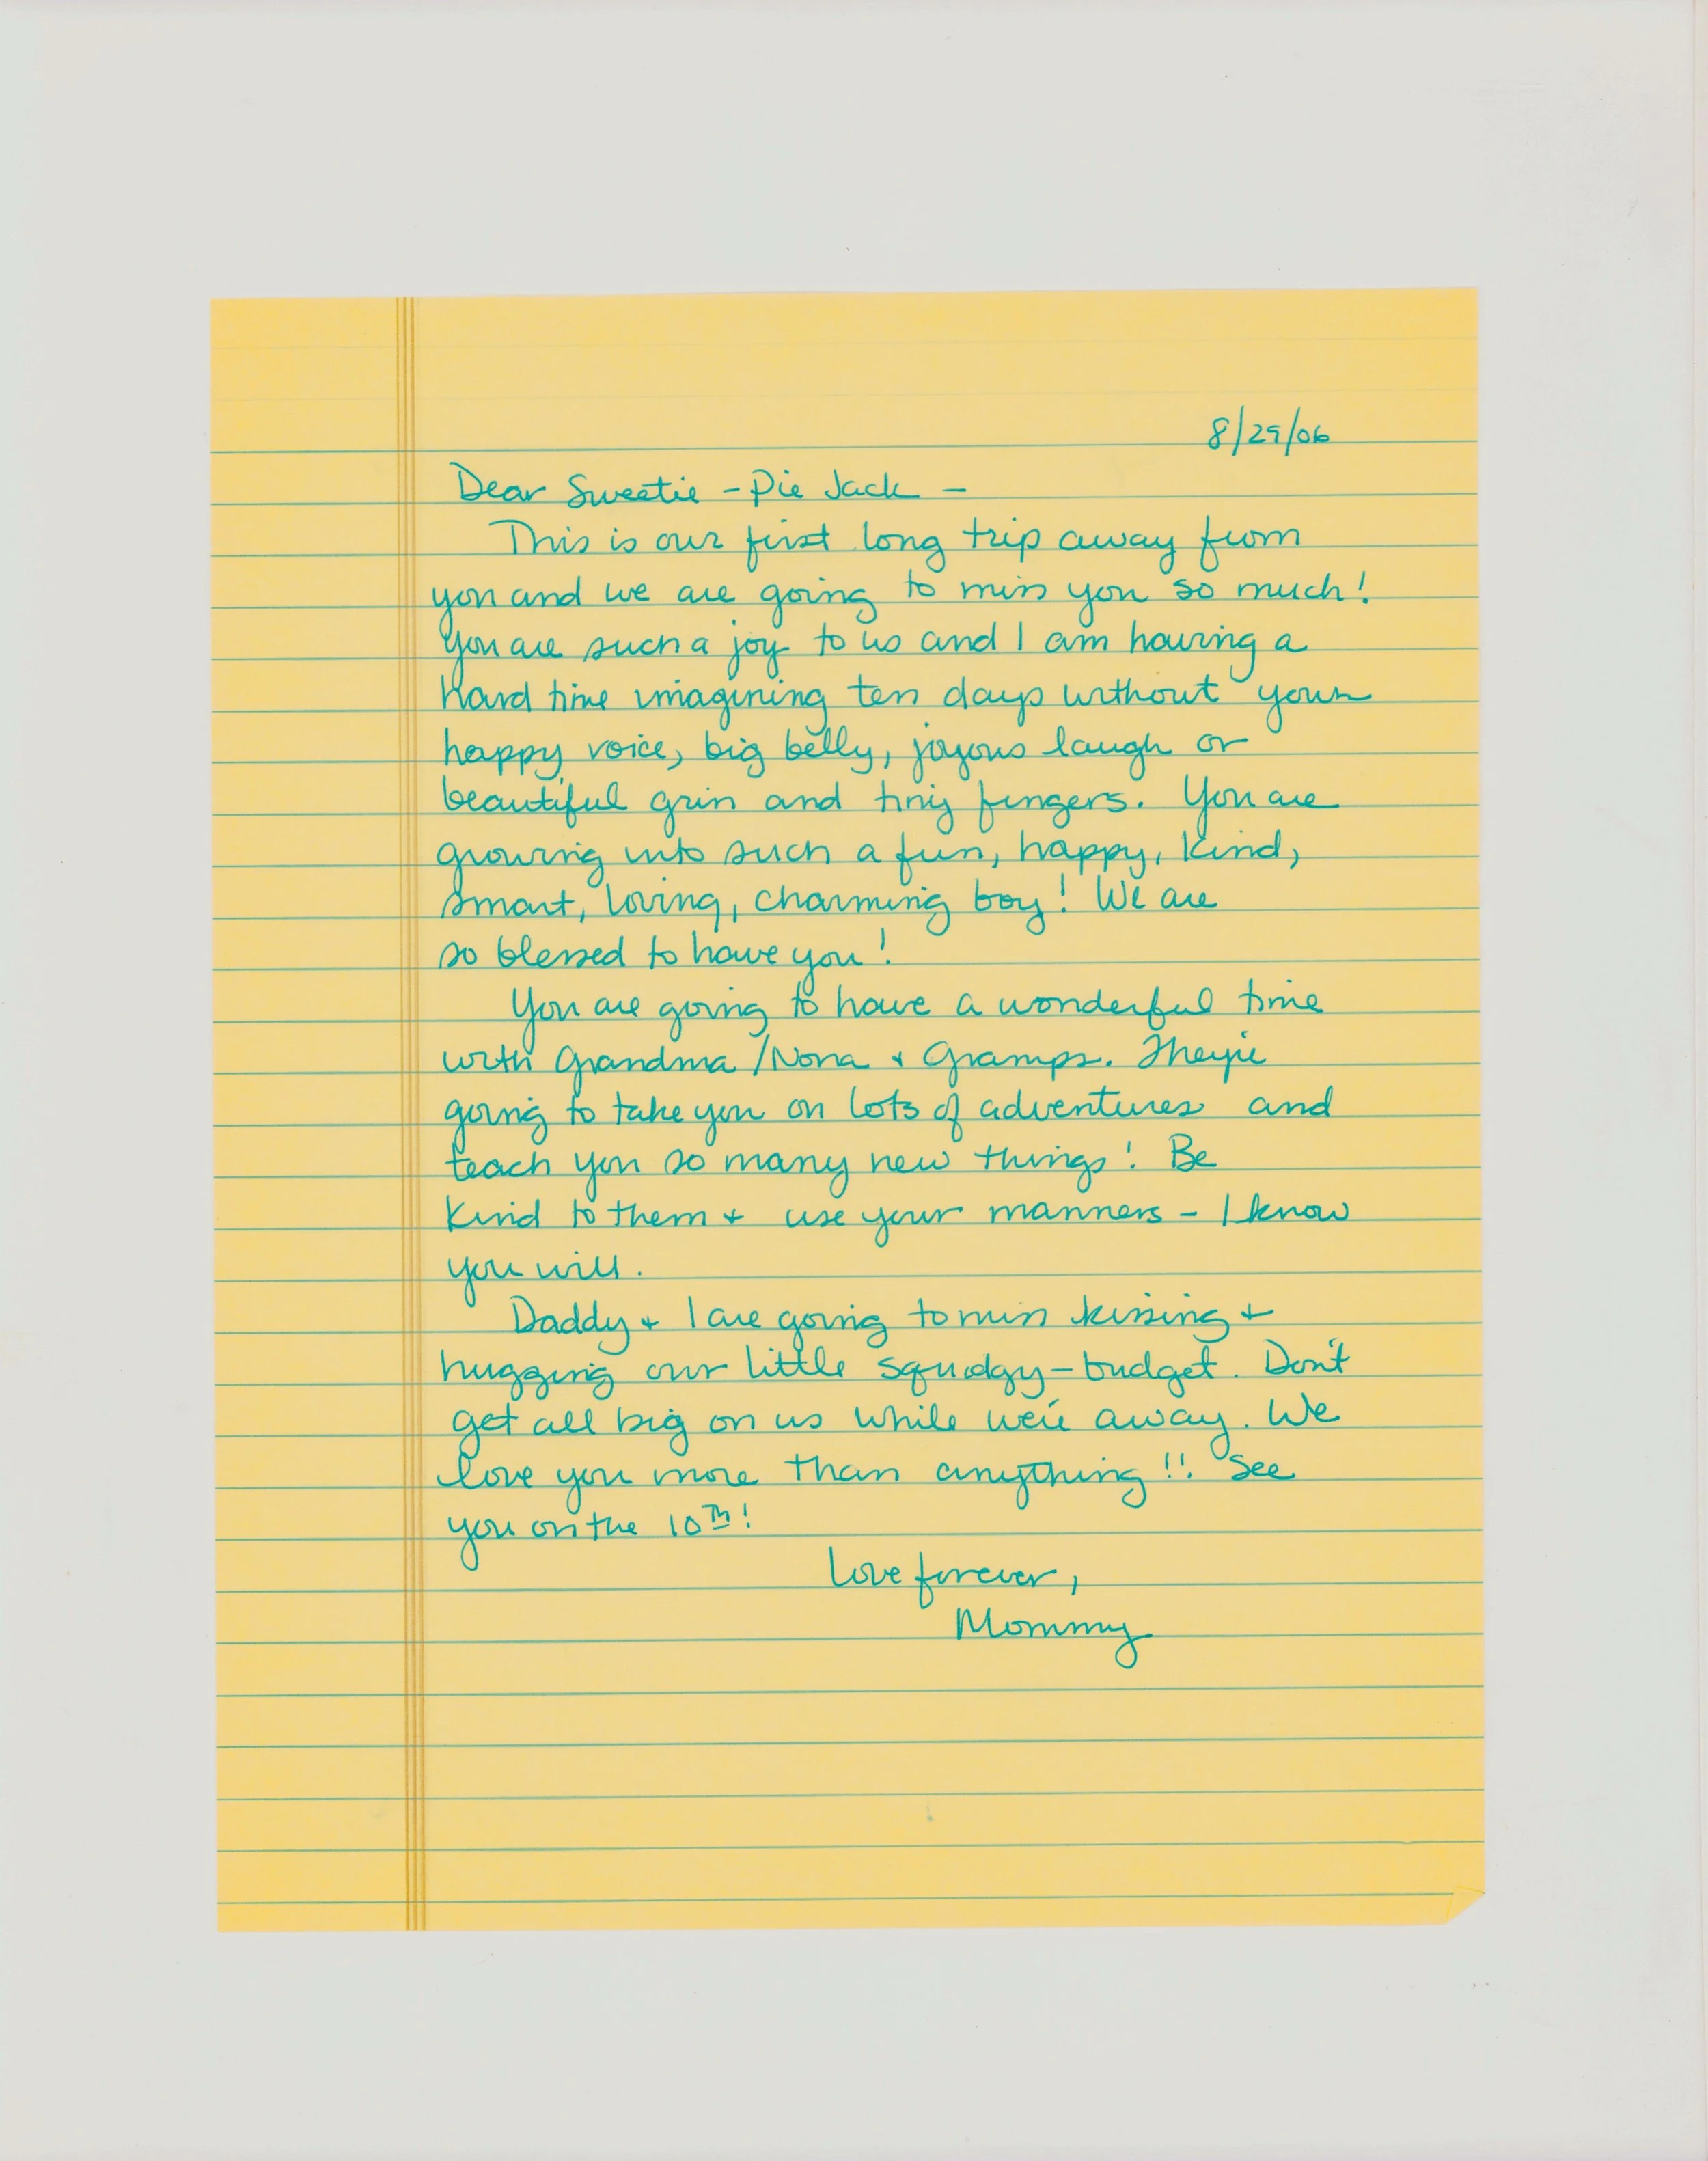 8/29/06
Dear Sweetie-Pie Jack -
This is our first long trip away from
you and we are going to miss you so much!
You are such a joy to us and I am having a
hard time imagining ten days without your
happy voice, big belly, joyous laugh or
beautiful grin and tiny fingers. You are
growing into such a fun, happy, kind,
smart, loving, charming boy! We are
so blessed to have you!
You are going to have a wonderful time
with Grandma/Nona + Gramps. They're
going to take you on lots of adventures and
teach you so many new things! Be
kind to them + use your manners - I know
you will.
Daddy + I are going to miss kissing +
hugging our little squdgy-budget. Don't
get all big on us while we're away. We
love you more than anything!! See
you on the 10TH!
Love forever,
Mommy